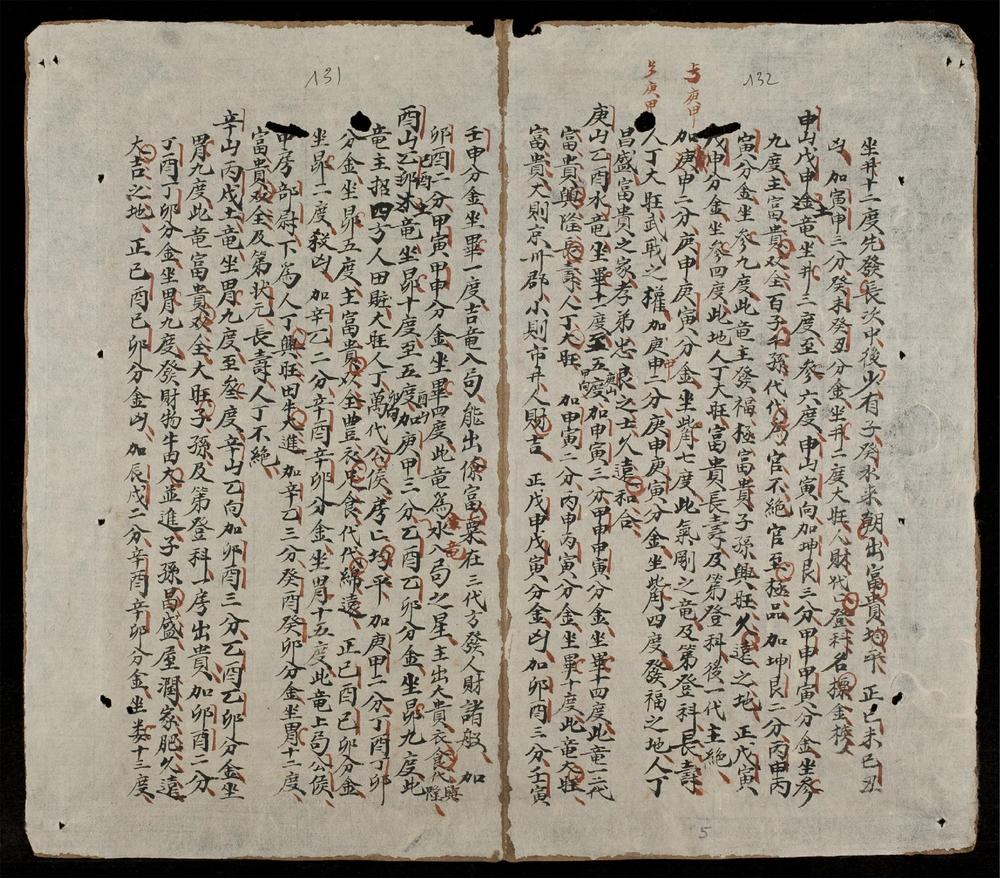 132
坐井十二度先發長次中後少有子癸水来朝出富貴均平 正己未己丑
凶 加寅申三分癸未癸丑分金坐井二度大旺人財代〻登科名掛金榜
申山戊申土竜坐井三度至参六度申山寅向加坤艮三分甲申甲寅分金坐参
九度主富貴双全百子千孫代代為官不絶官至極品 加坤艮二分丙申丙
寅分金坐参九度此竜主發福極富貴子孫興旺久遠之地 正戊寅
戊申分金坐参四度此地人丁大旺富貴長壽及第登科後一代主絶
加庚甲二分庚申庚寅分金坐觜七度此氣剛之竜及第登科長壽
与庚甲
人丁大旺武职之權 加庚甲二分庚申庚寅分金坐觜四度發福之地人丁
与庚甲
昌盛富貴之家孝弟忠良之士久遠和合
庚山乙酉水竜坐畢十度至五度庚山甲向加申寅三分甲申甲寅分金坐畢十四度此竜一代
富貴興隆長壽人丁大旺 加申寅二分丙申丙寅分金坐畢十度此竜大旺
富貴大則京州郡小則市井人財吉 正戊申戊寅分金凶 加卯酉三分壬寅
5
131
壬申分金坐畢一度吉竜入局能出倸富粟在三代方發人財諸般 加
卯酉二分甲寅甲申分金坐畢四度此竜為水入局之星主出大貴衣食代興隆
酉山己酉土竜坐昴十度至五度酉山卯向加庚甲三分乙酉乙卯分金坐昴九度此
竜主招四方人田賍大旺人丁萬代公侯房亡均平 加庚甲二分丁酉丁卯
分金坐昴五度主富貴双全豊衣足食代代綿遠 正己酉己卯分金
坐昴二度殺凶 加辛乙二分辛酉辛卯分金坐胃十五度此竜上局公侯
甲房部尉下為人丁興旺田牛大進 加辛乙三分癸酉癸卯分金坐胃十二度
富貴双全及第状元長壽人丁不絶
辛山丙戌土竜坐胃九度至婁度辛山乙向加卯酉三分乙酉乙卯分金坐
胃九度此竜富貴双全大旺子孫及第登科一房出貴 加卯酉二分
丁酉丁卯分金坐胃九度發財物牛畄大並進子孫昌盛屋潤家肥久遠
大吉之地 正己酉己卯分金凶 加辰戌二分辛酉辛卯分金坐婁十三度